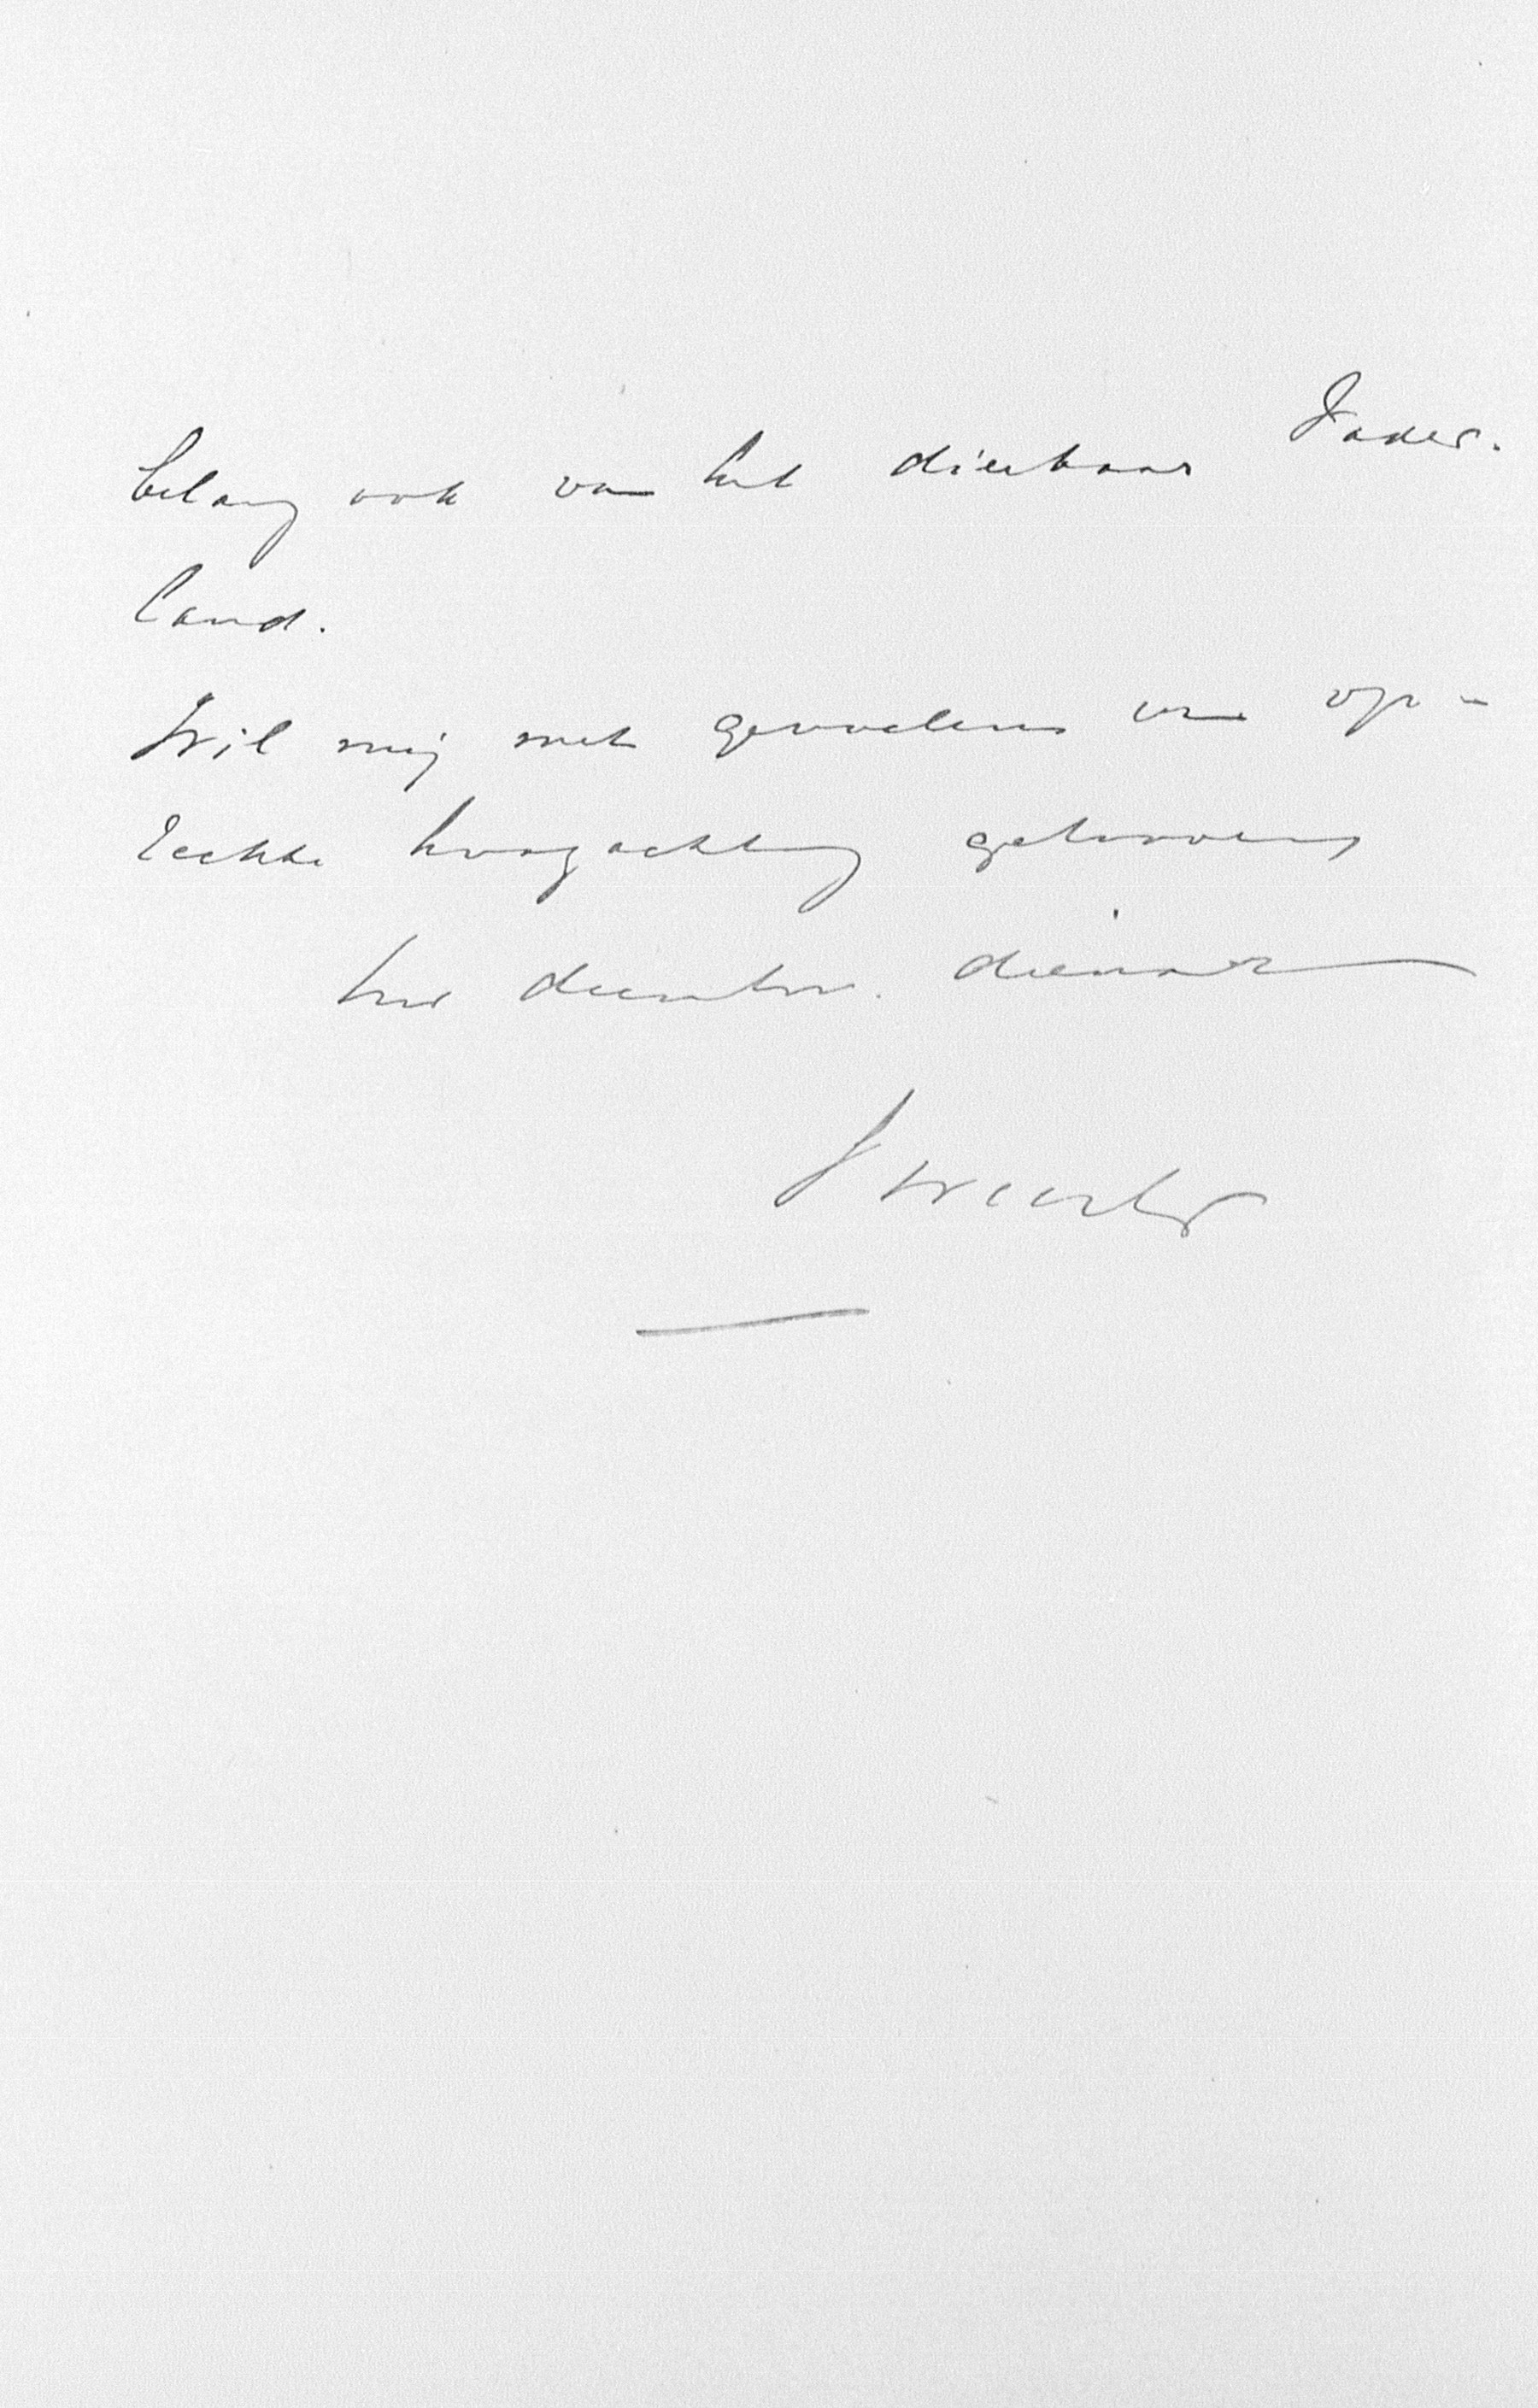 belang ook van het dierbaar Vader-
land.
Wil mij met gevoelens van op-
rechte hoogachting gelooven
Uw dienstw. dienaar
Sweerts